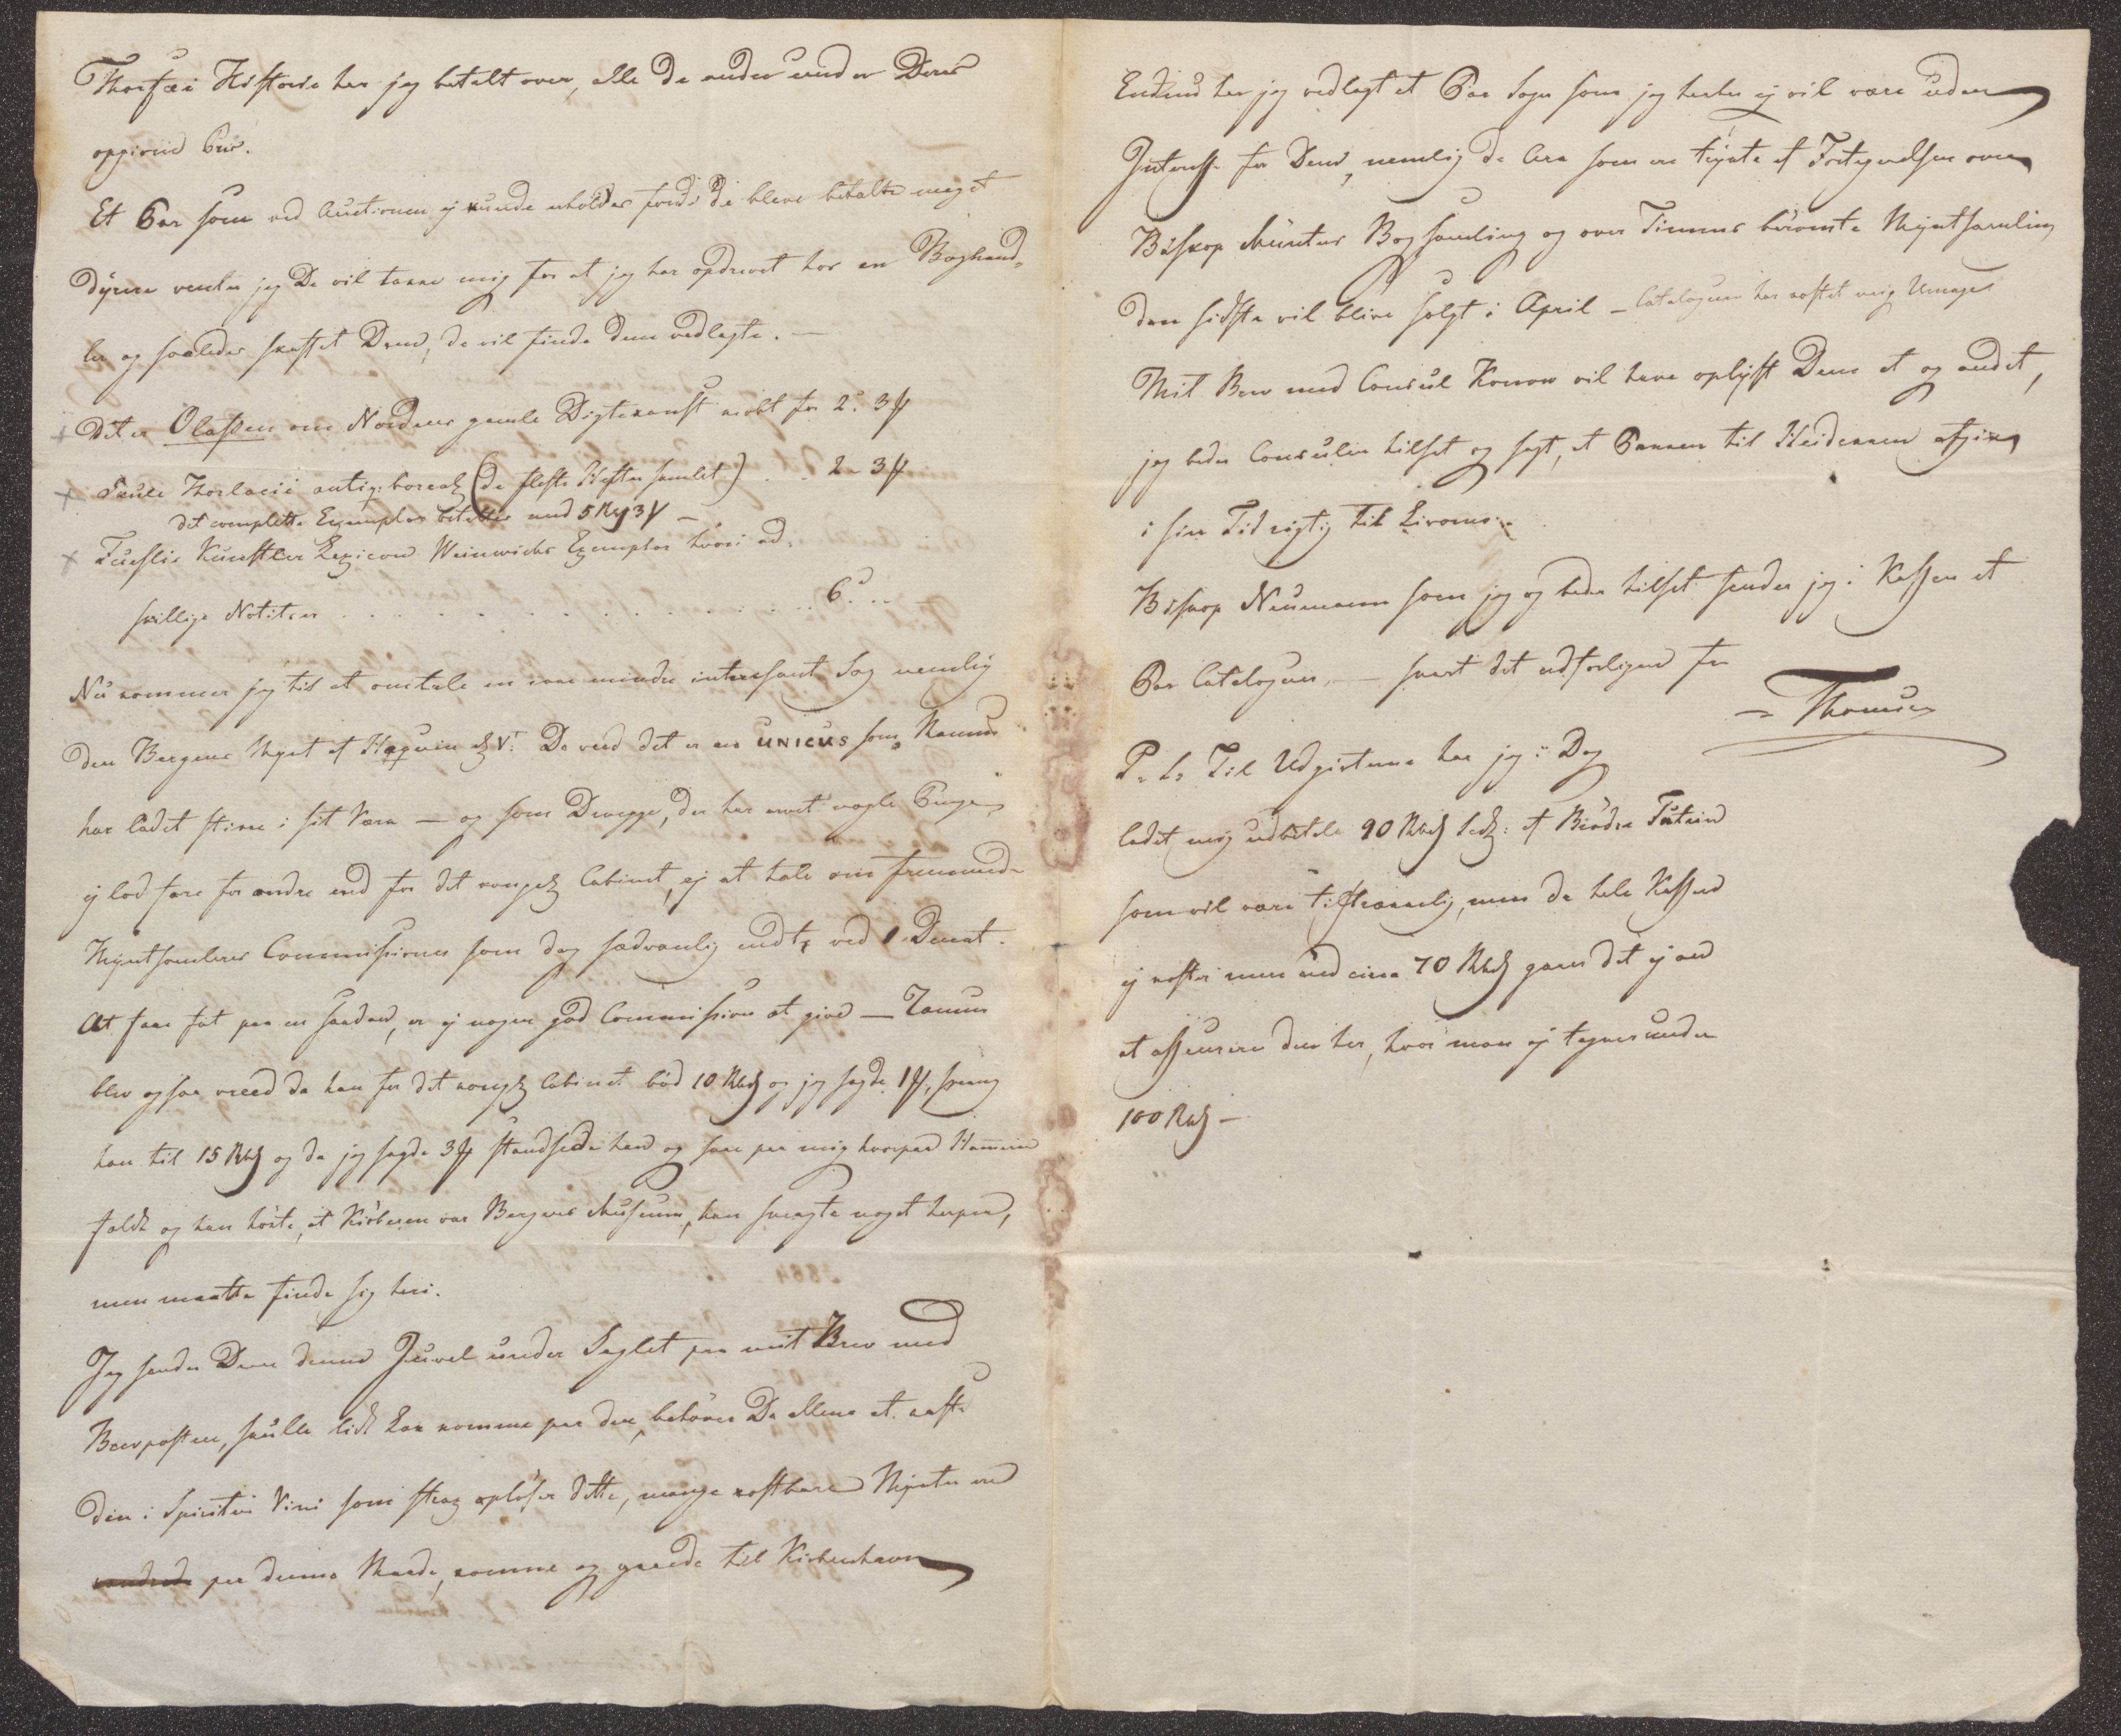 Thorfæi Historie har jeg betalt over, alle de andre under Deres
opgivne Priis.
Et Par som ved Auctionen ej kunde erholdes fordi de bleve betalte meget
dyrere venter jeg De vil takke mig for at jeg har opdrevet hos en Boghand-
ler og saaledes skaffet Dem, de vil finde dem vedlagte. —
Det er Olafsen om Nordens gamle Digtekonst kiøbt for 2. 3 ß
Skule Thorlacii antiq: boreal (de fleste Hefter samlet) . . 2 - 3 ß
det complette Exemplar betaltes med 5 Rb 3 ß —
Fueslis Kunstler Lexicon Weinwichs Exemplar hvori ad-
skillige Notitser . . . . . . 6. . .
Nu kommer jeg til at omtale en ikke mindre interessant Sag nemlig
den Bergens Mynt af Haquin VI. De veed det er en UNICUS som Ramus
har ladet stikke i sit Værk — og som Devegge, der har arvet nogle Penge
ej lod fare for andre end for det kongel Cabinet, ej at tale om fremmede
Myntsamleres Commissioner som dog sædvanlig endte ved 1 Ducat.
At faae fat paa en saadan, er ej nogen god Commission at give — Ramus
blev ogsaa vreed da han for det kongl Cabinet bød 10 Rbd og jeg sagde 1 ß, sprang
han til 15 Rbd og da jeg sagde 3 ß standsede han og saae paa mig hvorpaa Hameren
faldt og han hørte, at Kiøberen var Bergens Museum, han smagte noget herpaa,
men maatte finde sig heri.
Jeg sender Dem denne Juvel under Seglet paa mit Brev med
Brevposten, skulle lidt Lak komme paa den, behøver De allene at kaste
den i Spiritus Vini som strax opløser dette, mange kostbare Mynter ere
paa denne Maade komme og gaaede til Kiøbenhavn
Endnu har jeg vedlagt et Par Sager som jeg troer ej vil være uden
Interesse for Dem, nemlig de Ark som ere trykte af Fortegnelsen over
Biskop Münters Bogsamling og over Timms berømte Myntsamling
den sidste vil blive solgt i April — Catalogen har kostet mig Umage
Mit Brev med Consul Konow vil have oplyst Dem et og andet,
jeg beder Consulen hilset og sagt, at Pakken til Heidemann afgik
i sin Tid rigtig til Livorno.
Biskop Neumann som jeg og beder hilset sender jeg i Kassen et
Par Cataloger, — snart det udførligere fra
Thomsen
P. S. Til Udgifterne har jeg i Dag
ladet mig udbetale 90 Rbd Sedl: af Brødre Tutein
som vil være tilstrækkelig, men da hele Kassen
ej koster mere end circa 70 Rbd gaaer det ej an
at assurere den her, hvor man ej tegner under
100 Rbd —